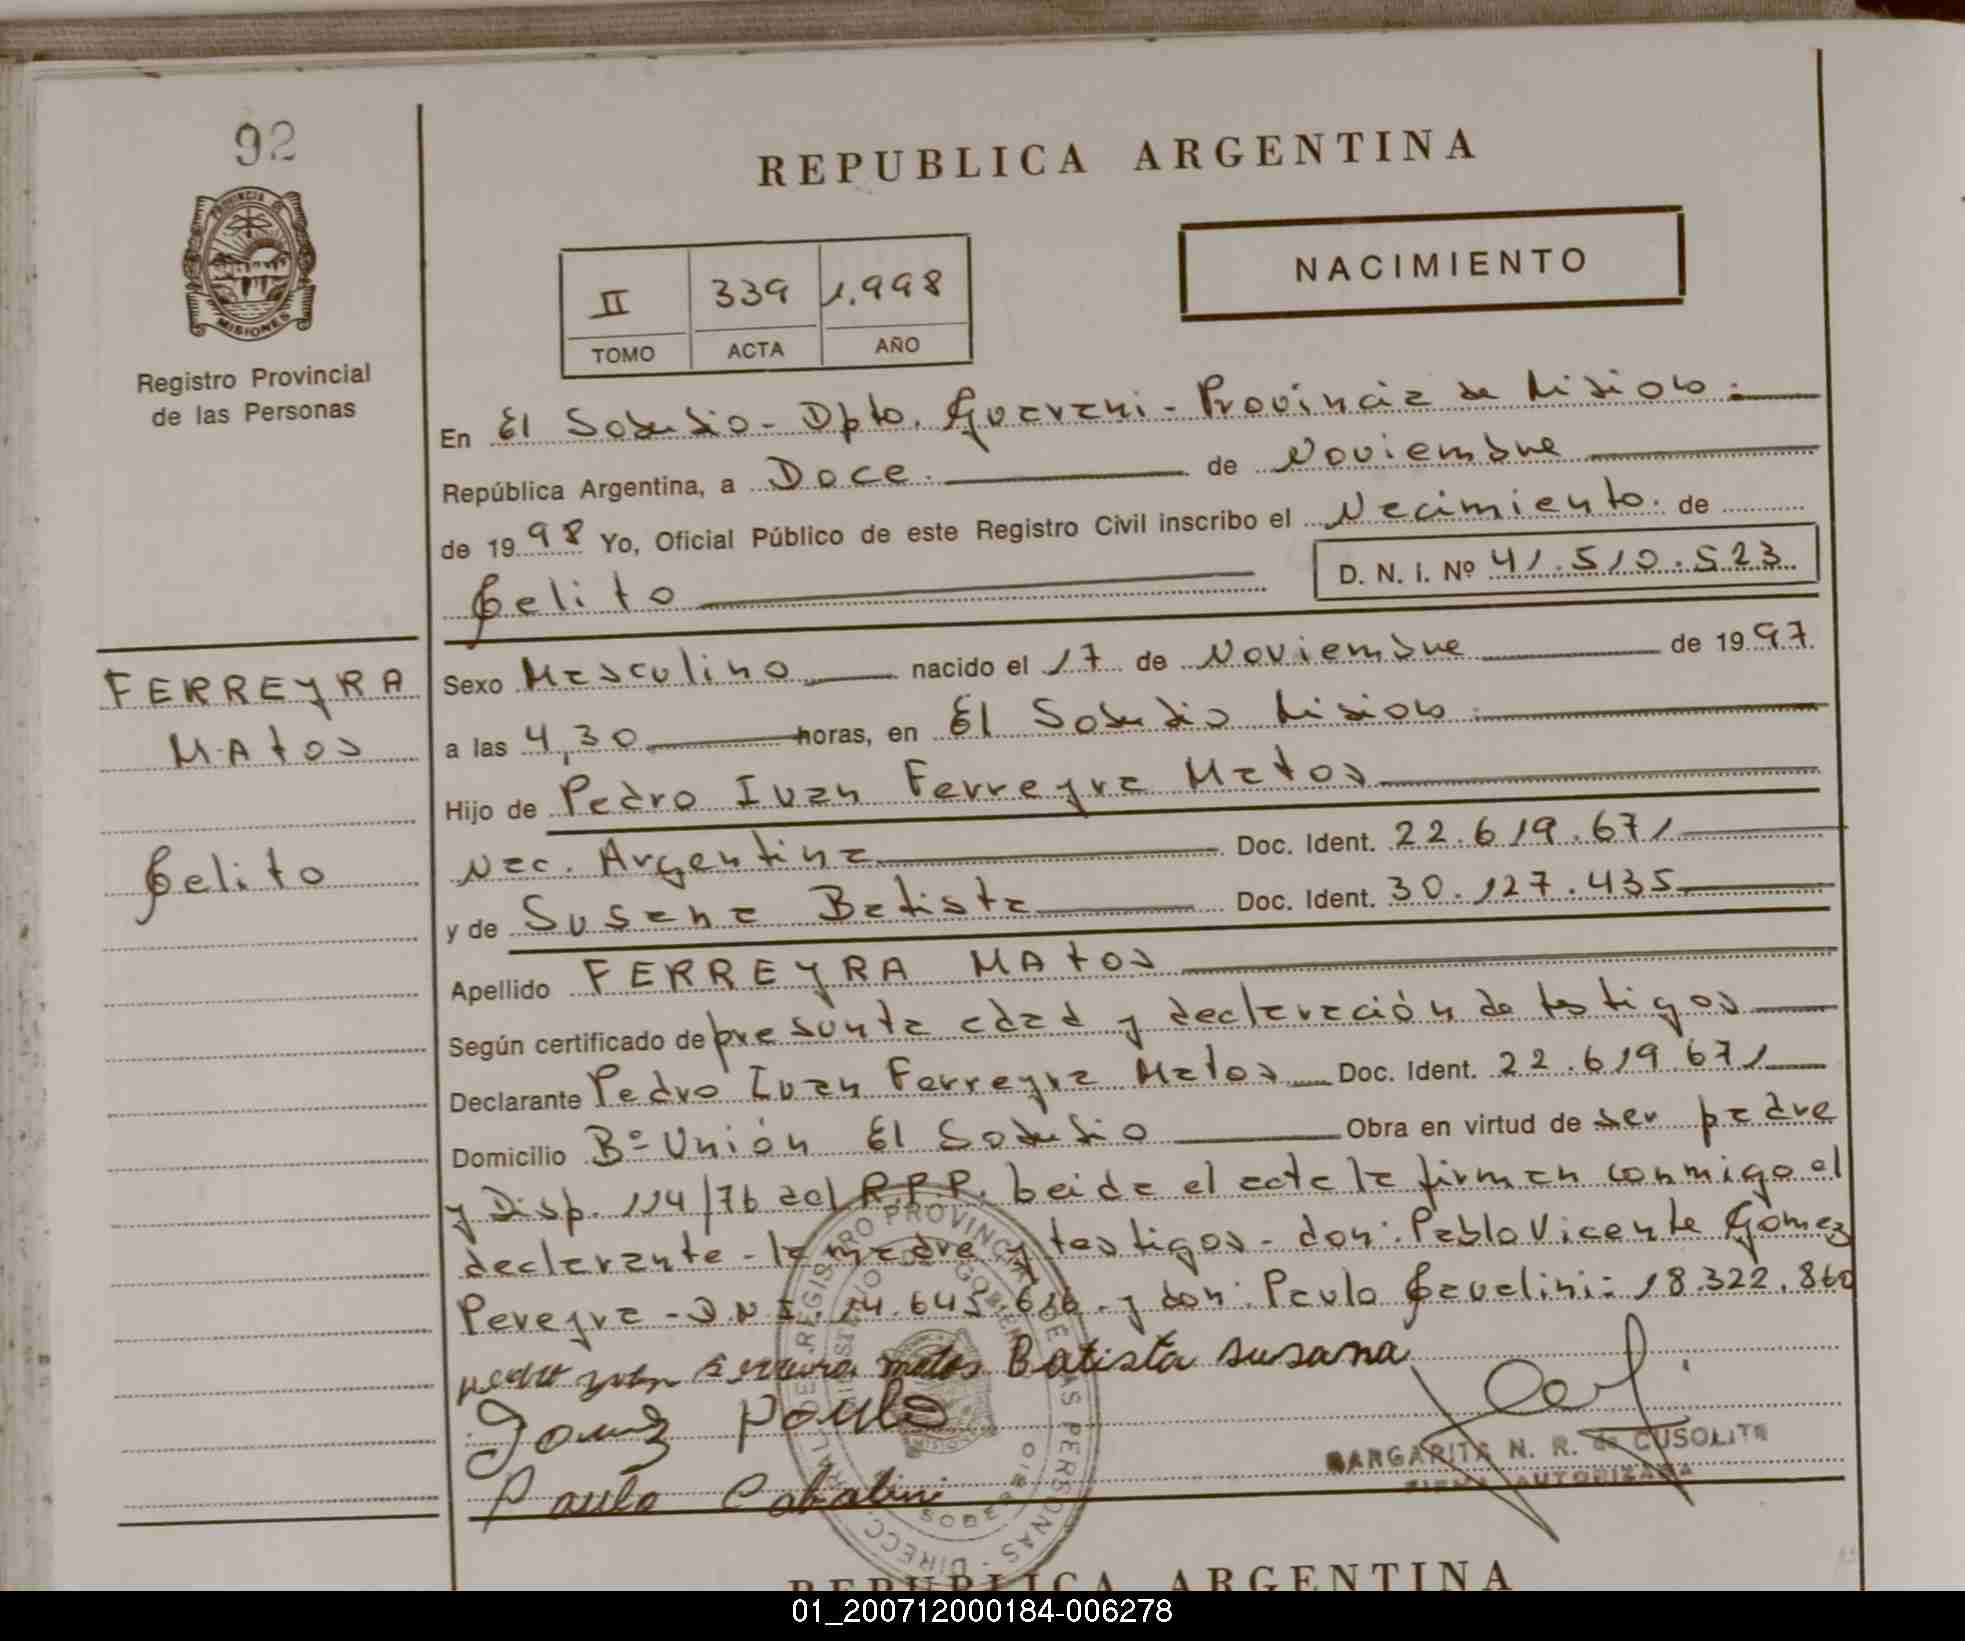 92
REPUBLICA ARGENTINA
NACIMIENTO
PROVINCIA DE
MISIONES
II 339 1.998
TOMO ACTA AÑO
Registro Provincial
de las Personas
En El Soberbio - Dpto. Guarani - Provincia de Misiones.
República Argentina, a Doce. de Noviembre
de 1998 Yo, Oficial Público de este Registro Civil inscribo el Nacimiento. de
Celito D. N. I. Nº 41.510.523
FERREYRA
MAtos
Celito
Sexo Masculino nacido el 17 de Noviembre de 1997.
a las 4,30 horas, en El Soberbio Misiones.
Hijo de Pedro Ivan Ferreyra Matos
Nac. Argentina Doc. Ident. 22.619.671
y de Susana Batista Doc. Ident. 30.127.435
Apellido FERREYRA MAtos
Según certificado de presunta edad y declaración de testigos
Declarante Pedro Ivan Ferreyra Matos Doc. Ident. 22.619.671
Domicilio Bº Unión El Soberbio Obra en virtud de ser padre
y Disp. 114/76 del R.P.P. Leida el acta la firman conmigo el
declarante - la madre y testigos - don: Pablo Vicente Gomez
Pereyra - D.N.I. 14.645.616 - y don: Paulo Cavelini: 18.322.860
matos Batista susana
Paulo
Paulo
MARGARITA N. R. de CUSOLITO
FIRMA AUTORIZADA
REGISTRO PROVINCIAL DE LAS PERSONAS
REPUBLICA ARGENTINA
01_200712000184-006278